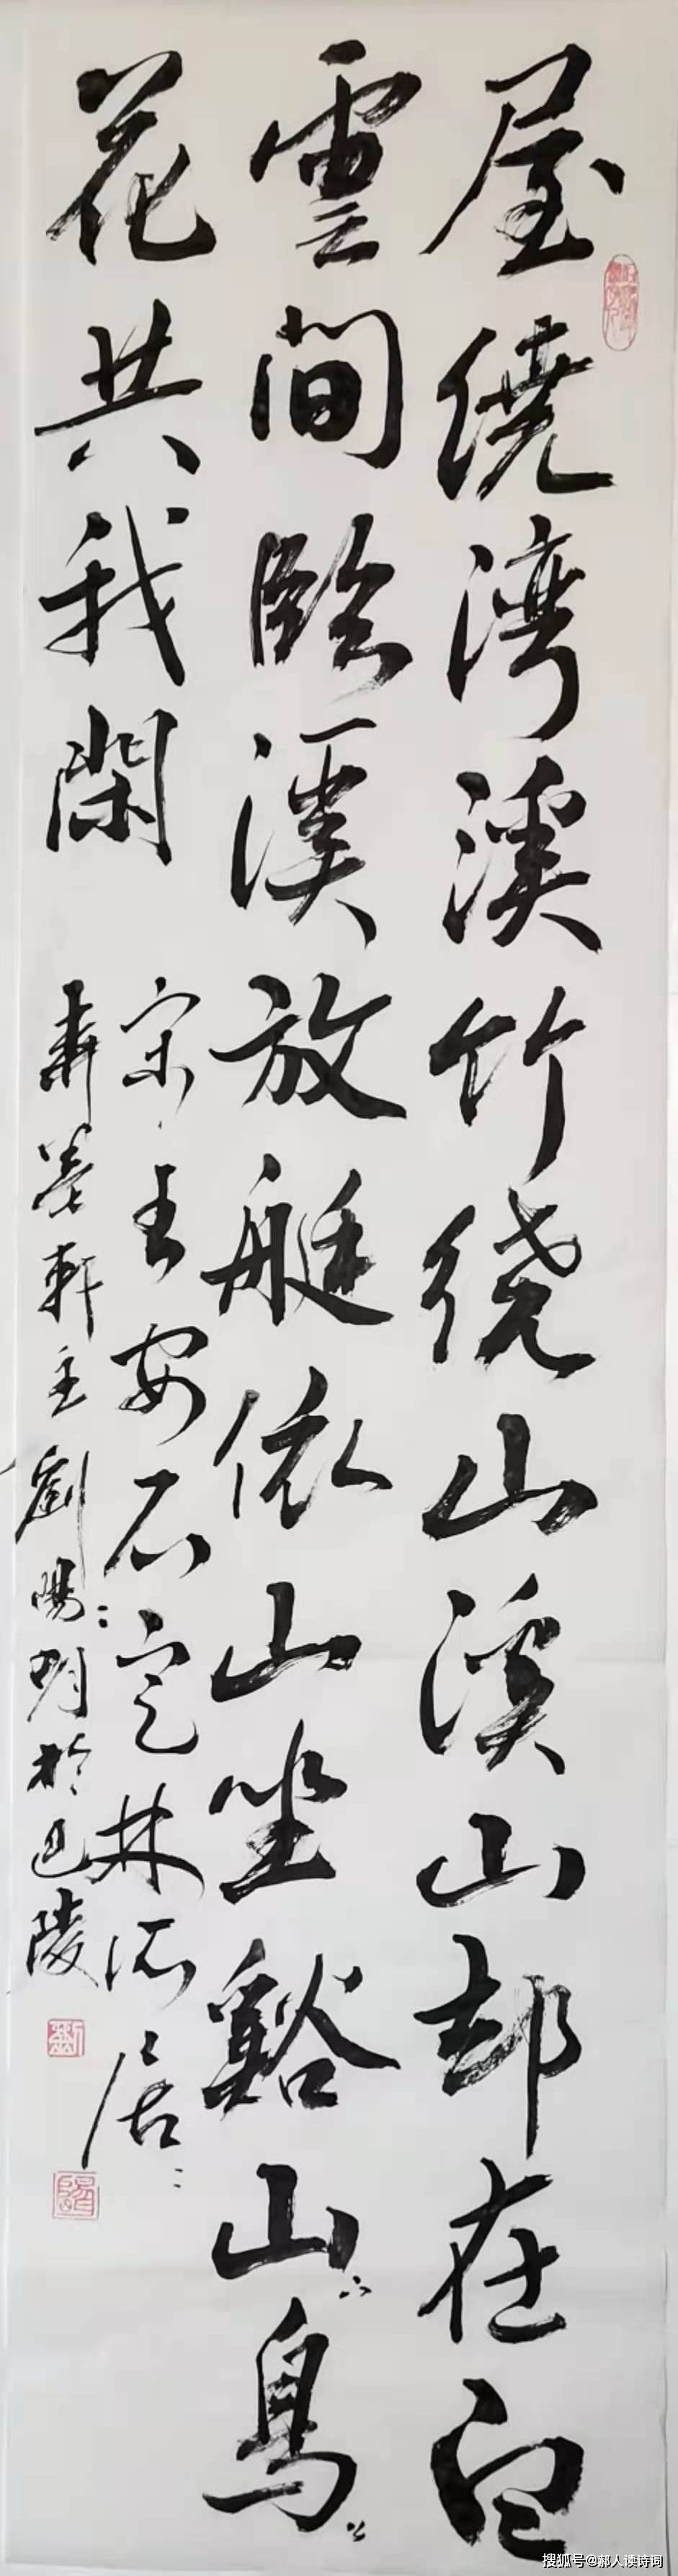 屋繞湾溪竹绕山溪山却在白
雲間臨溪放艇依山坐谿山鳥
花共我閑
宋王安石定林所居
壽墨軒主劉陽明於巴陵
搜狐号@郝人读诗词